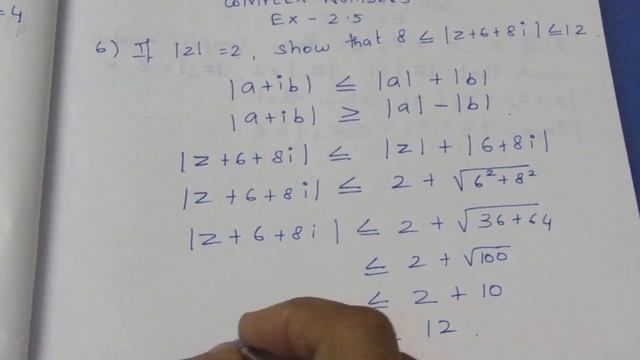 = 4
COMPLEX NUMBERS
Ex - 2.5
6) If |z| = 2, show that 8 ≤ |z+6+8i| ≤ 12.
|a+ib| ≤ |a| + |b|
|a+ib| ≥ |a| - |b|.
|z+6+8i| ≤ |z| + |6+8i|
|z+6+8i| ≤ 2 + √6²+8²
|z+6+8i| ≤ 2 + √36+64
≤ 2 + √100
≤ 2 + 10
12.